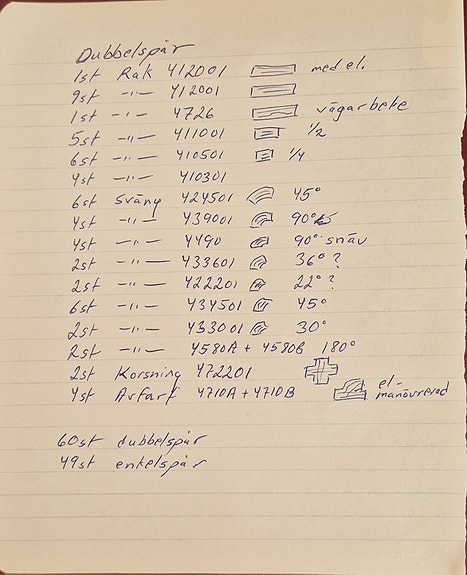 Dubbelspår
1st Rak 412001 med el.
9st -"- 412001
1st -"- 4726 vägarbete
5st -"- 411001 1/2
6st -"- 410501 1/4
4st -"- 410301
6st Sväng 424501 45°
4st -"- 439001 90°
4st -"- 4490 90° snäv
2st -"- 433601 36°?
2st -"- 422201 22°?
6st -"- 434501 45°
2st -"- 433001 30°
2st -"- 4580A + 4580B 180°
2st Korsning 472201
4st Avfart 4710A + 4710B el-
manövrerad
60st dubbelspår
49st enkelspår